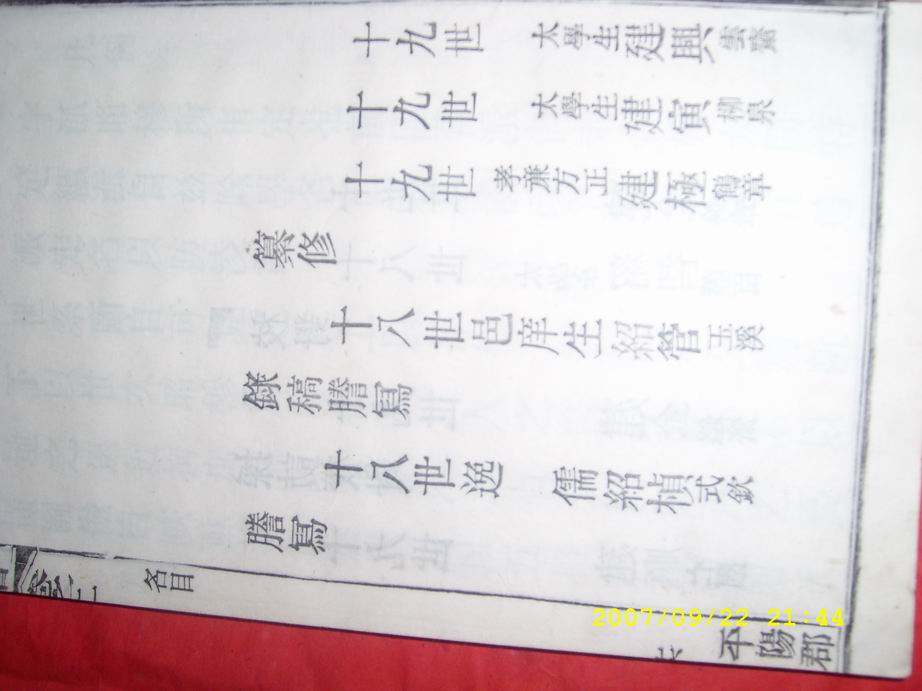 十九世 太學生建興雲齋
十九世 太學生建寅柳泉
十九世 孝廉方正建極鶴章
纂修
十八世邑庠生紹管玉溪
錄稿謄寫
十八世逸 儒紹楨式欽
謄寫
名目
六
平陽郡
2007/09/22 21:44